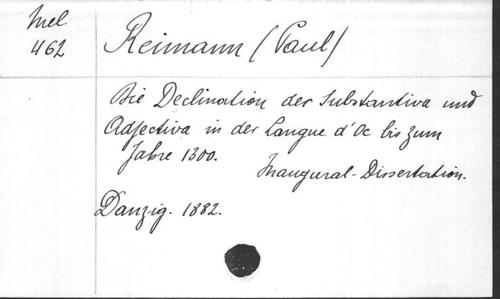 Mel
462
Reimann (Paul)
Die Declination der Substantiva und
Adjectiva in der Langue d'Oc bis zum
Jahre 1300.
Inaugural-Dissertation.
Danzig. 1882.